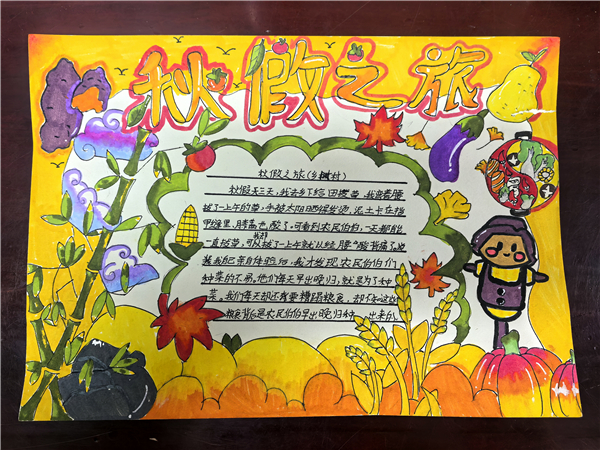 秋假之旅
秋假之旅(乡村)
秋假天三天,我去乡下给田拔草,我弯着腰
拔了一上午的草,手被太阳晒得发烫,泥土卡在指
甲缝里,脖高也酸了。可看到农民伯伯,一天都能
一直拔草,可我才拔了一上午就从经腰酸背痛了,这
我自己亲自体验后,我才发现农民伯伯们
种菜的不易,他们每天早出晚归,就是为了种
菜,我们每天却还有要糟蹋粮食,却不知这些
粮食都是农民伯伯早出晚归种 出来的